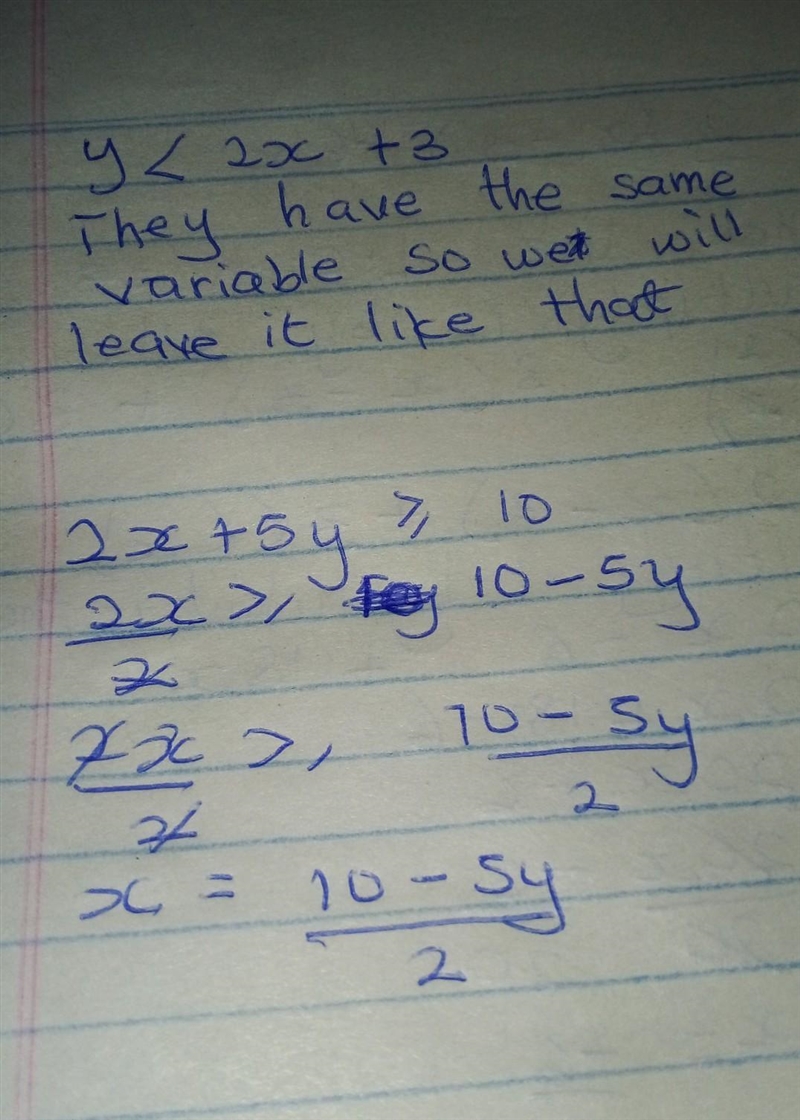 y < 2x + 3
They have the same
variable so we will
leave it like that
2x + 5y ⩾ 10
2x ⩾ 10 - 5y
2
2x ⩾ 10 - 5y
2 2
x = 10 - 5y
2